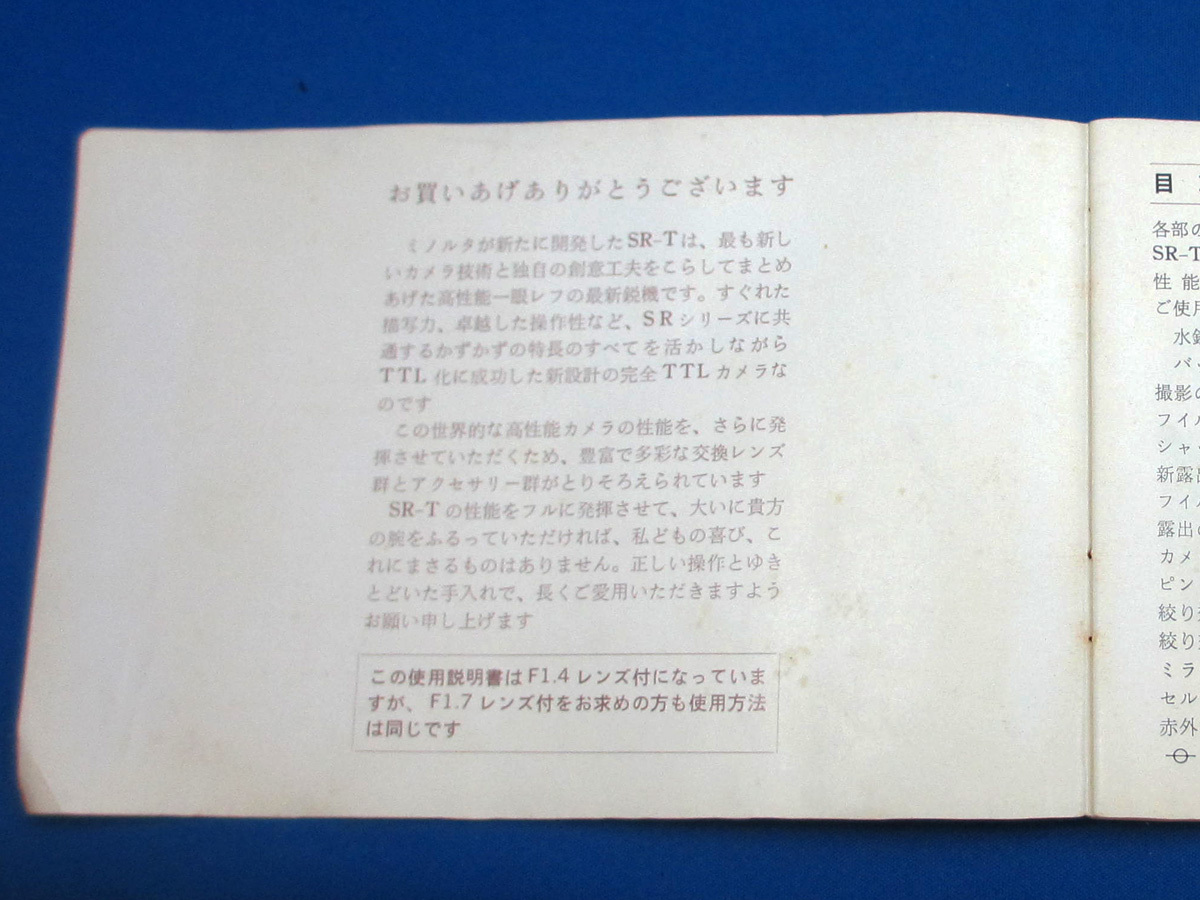 お買いあげありがとうございます
ミノルタが新たに開発したSR-Tは、最も新し
いカメラ技術と独自の創意工夫をこらしてまとめ
あげた高性能一眼レフの最新鋭機です。すぐれた
描写力、卓越した操作性など、SRシリーズに共
通するかずかずの特長のすべてを活かしながら
TTL化に成功した新設計の完全TTLカメラな
のです
この世界的な高性能カメラの性能を、さらに発
揮させていただくため、豊富で多彩な交換レンズ
群とアクセサリー群がとりそろえられています
SR-Tの性能をフルに発揮させて、大いに貴方
の腕をふるっていただければ、私どもの喜び、こ
れにまさるものはありません。正しい操作とゆき
とどいた手入れで、長くご愛用いただきますよう
お願い申し上げます
この使用説明書はF1.4レンズ付になっていま
すが、F1.7レンズ付をお求めの方も使用方法
は同じです
目
各部の
SR-T
性能
ご使用
水銀
バ
撮影の
フイル
シャ
新露出
フイ
露出
カメ
ピン
絞り
絞り
ミラ
セル
赤外